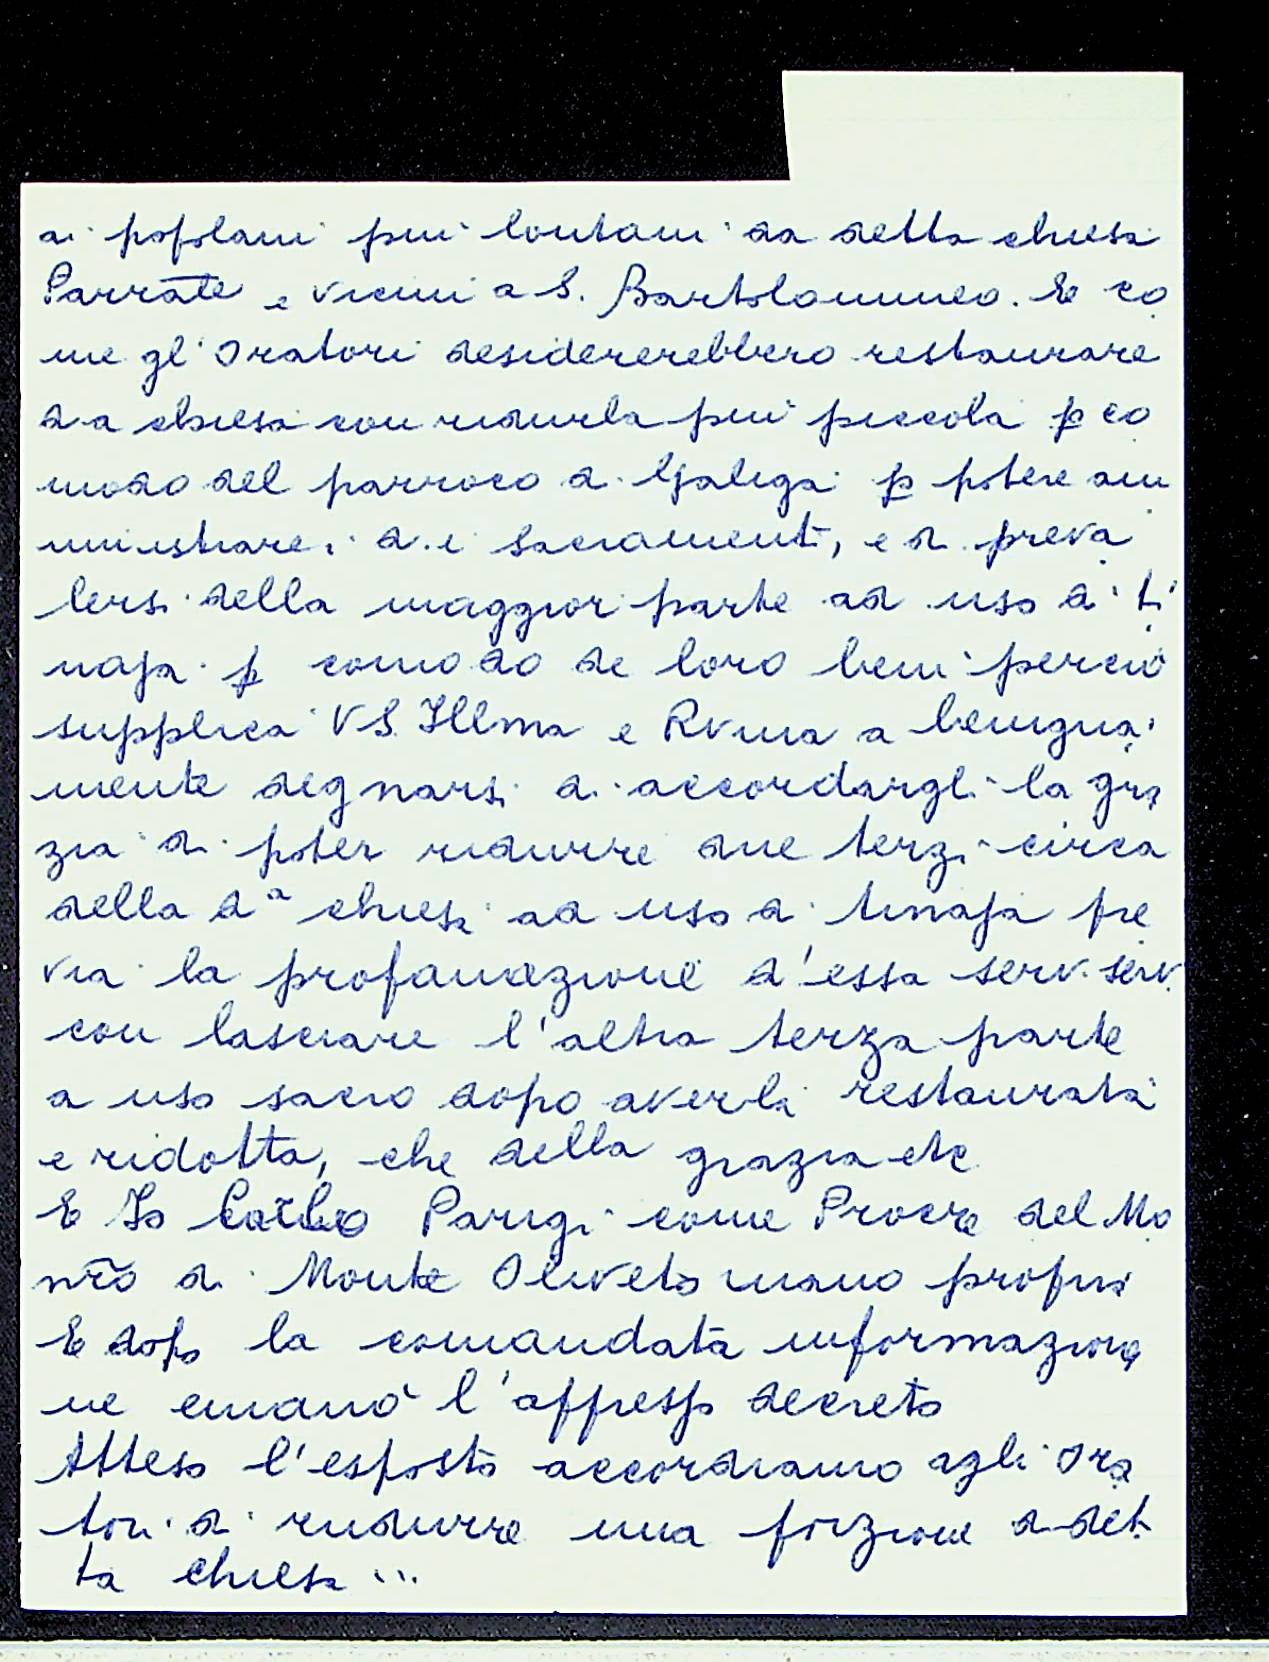 ai popolani piu lontani da detta chiesa
Parrāte e vicini a S. Bartolommeo. E co
me gl'Oratori desidererebbero restaurare
da chiesa con ridurla piu piccola p co
modo del parroco di Galiga p potere am
ministrare i di i sacramenti, e di preva
lersi della maggior parte ad uso di ti
naja p comodo de loro beni perciò
supplica VS. Illma e Rvma a benigna
mente degnarsi di accordargli la gra
zia di poter ridurre due terzi circa
della dª chiesa ad uso di tinaja pre
via la profanazione d'essa serv. serv.
con lasciare l'altra terza parte
a uso sacro dopo averla restaurata
e ridotta, che della grazia etc
E Io Parigi come Procre del Mo
nrō di Monte Oliveto mano propria
E dopo la comandata informazione
ne emanò l'appresso decreto
Atteso l'esposto accordiamo agli Ora
tori di ridurre una porzione di det
ta chiesa ...